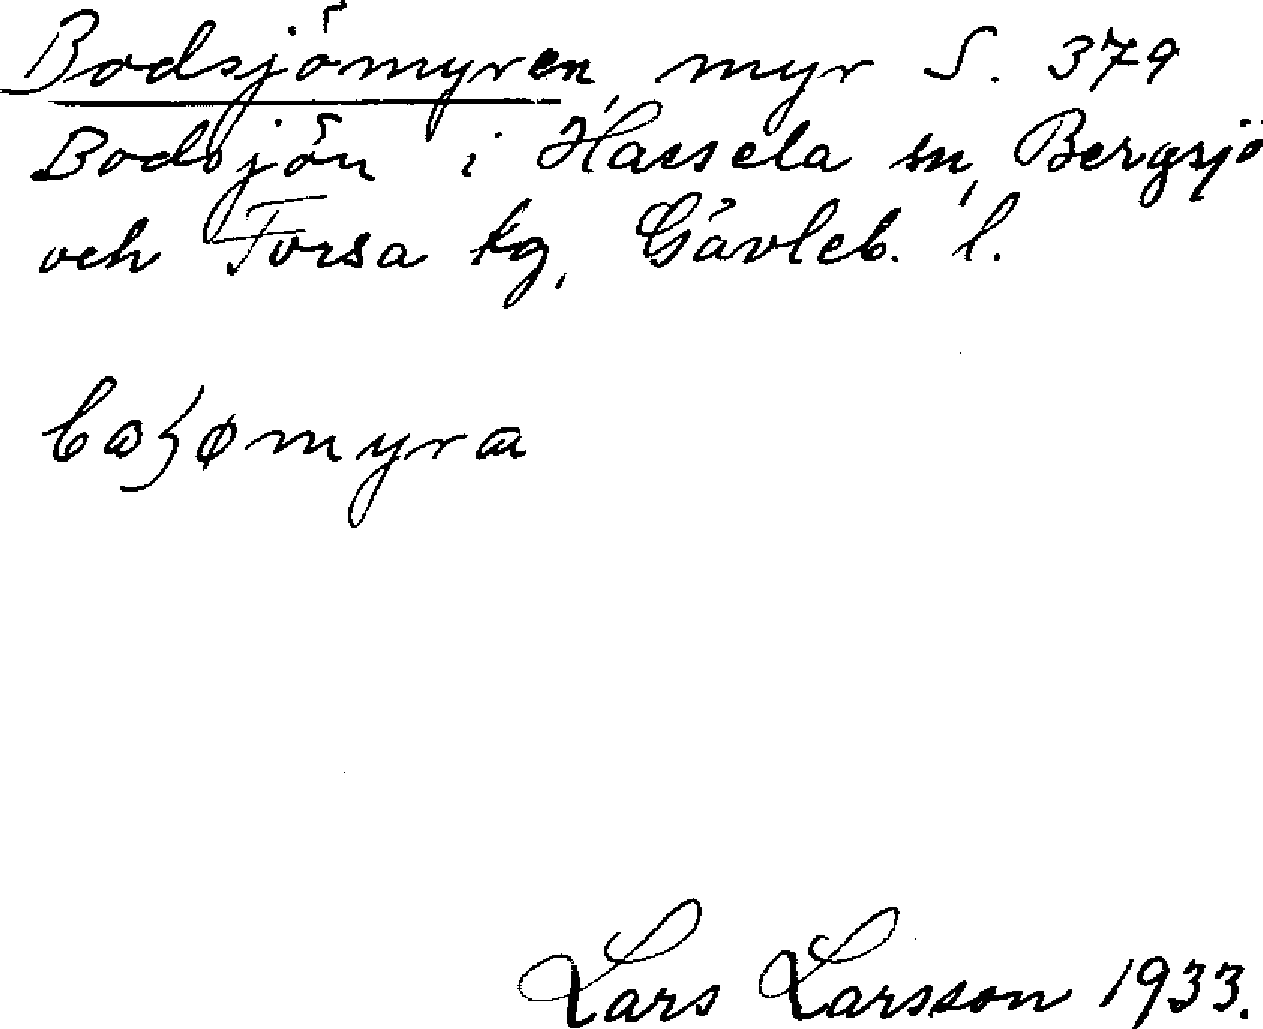 Bodsjömyren, myr S. 379
Bodsjön i Hassela sn, Bergsjö
och Forsa tg, Gävleb. l.
myra
Lars Larsson 1933.